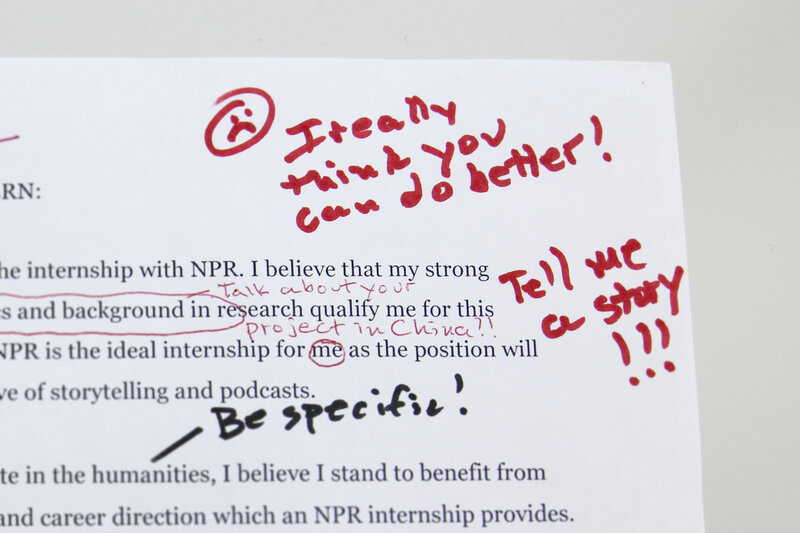 I really
think you
can do better!
ERN:
he internship with NPR. I believe that my strong
Talk about your
s and background in research qualify me for this
project in China!!
NPR is the ideal internship for me as the position will
ve of storytelling and podcasts.
Tell me
a story
!!!
Be specific!
te in the humanities, I believe I stand to benefit from
and career direction which an NPR internship provides.